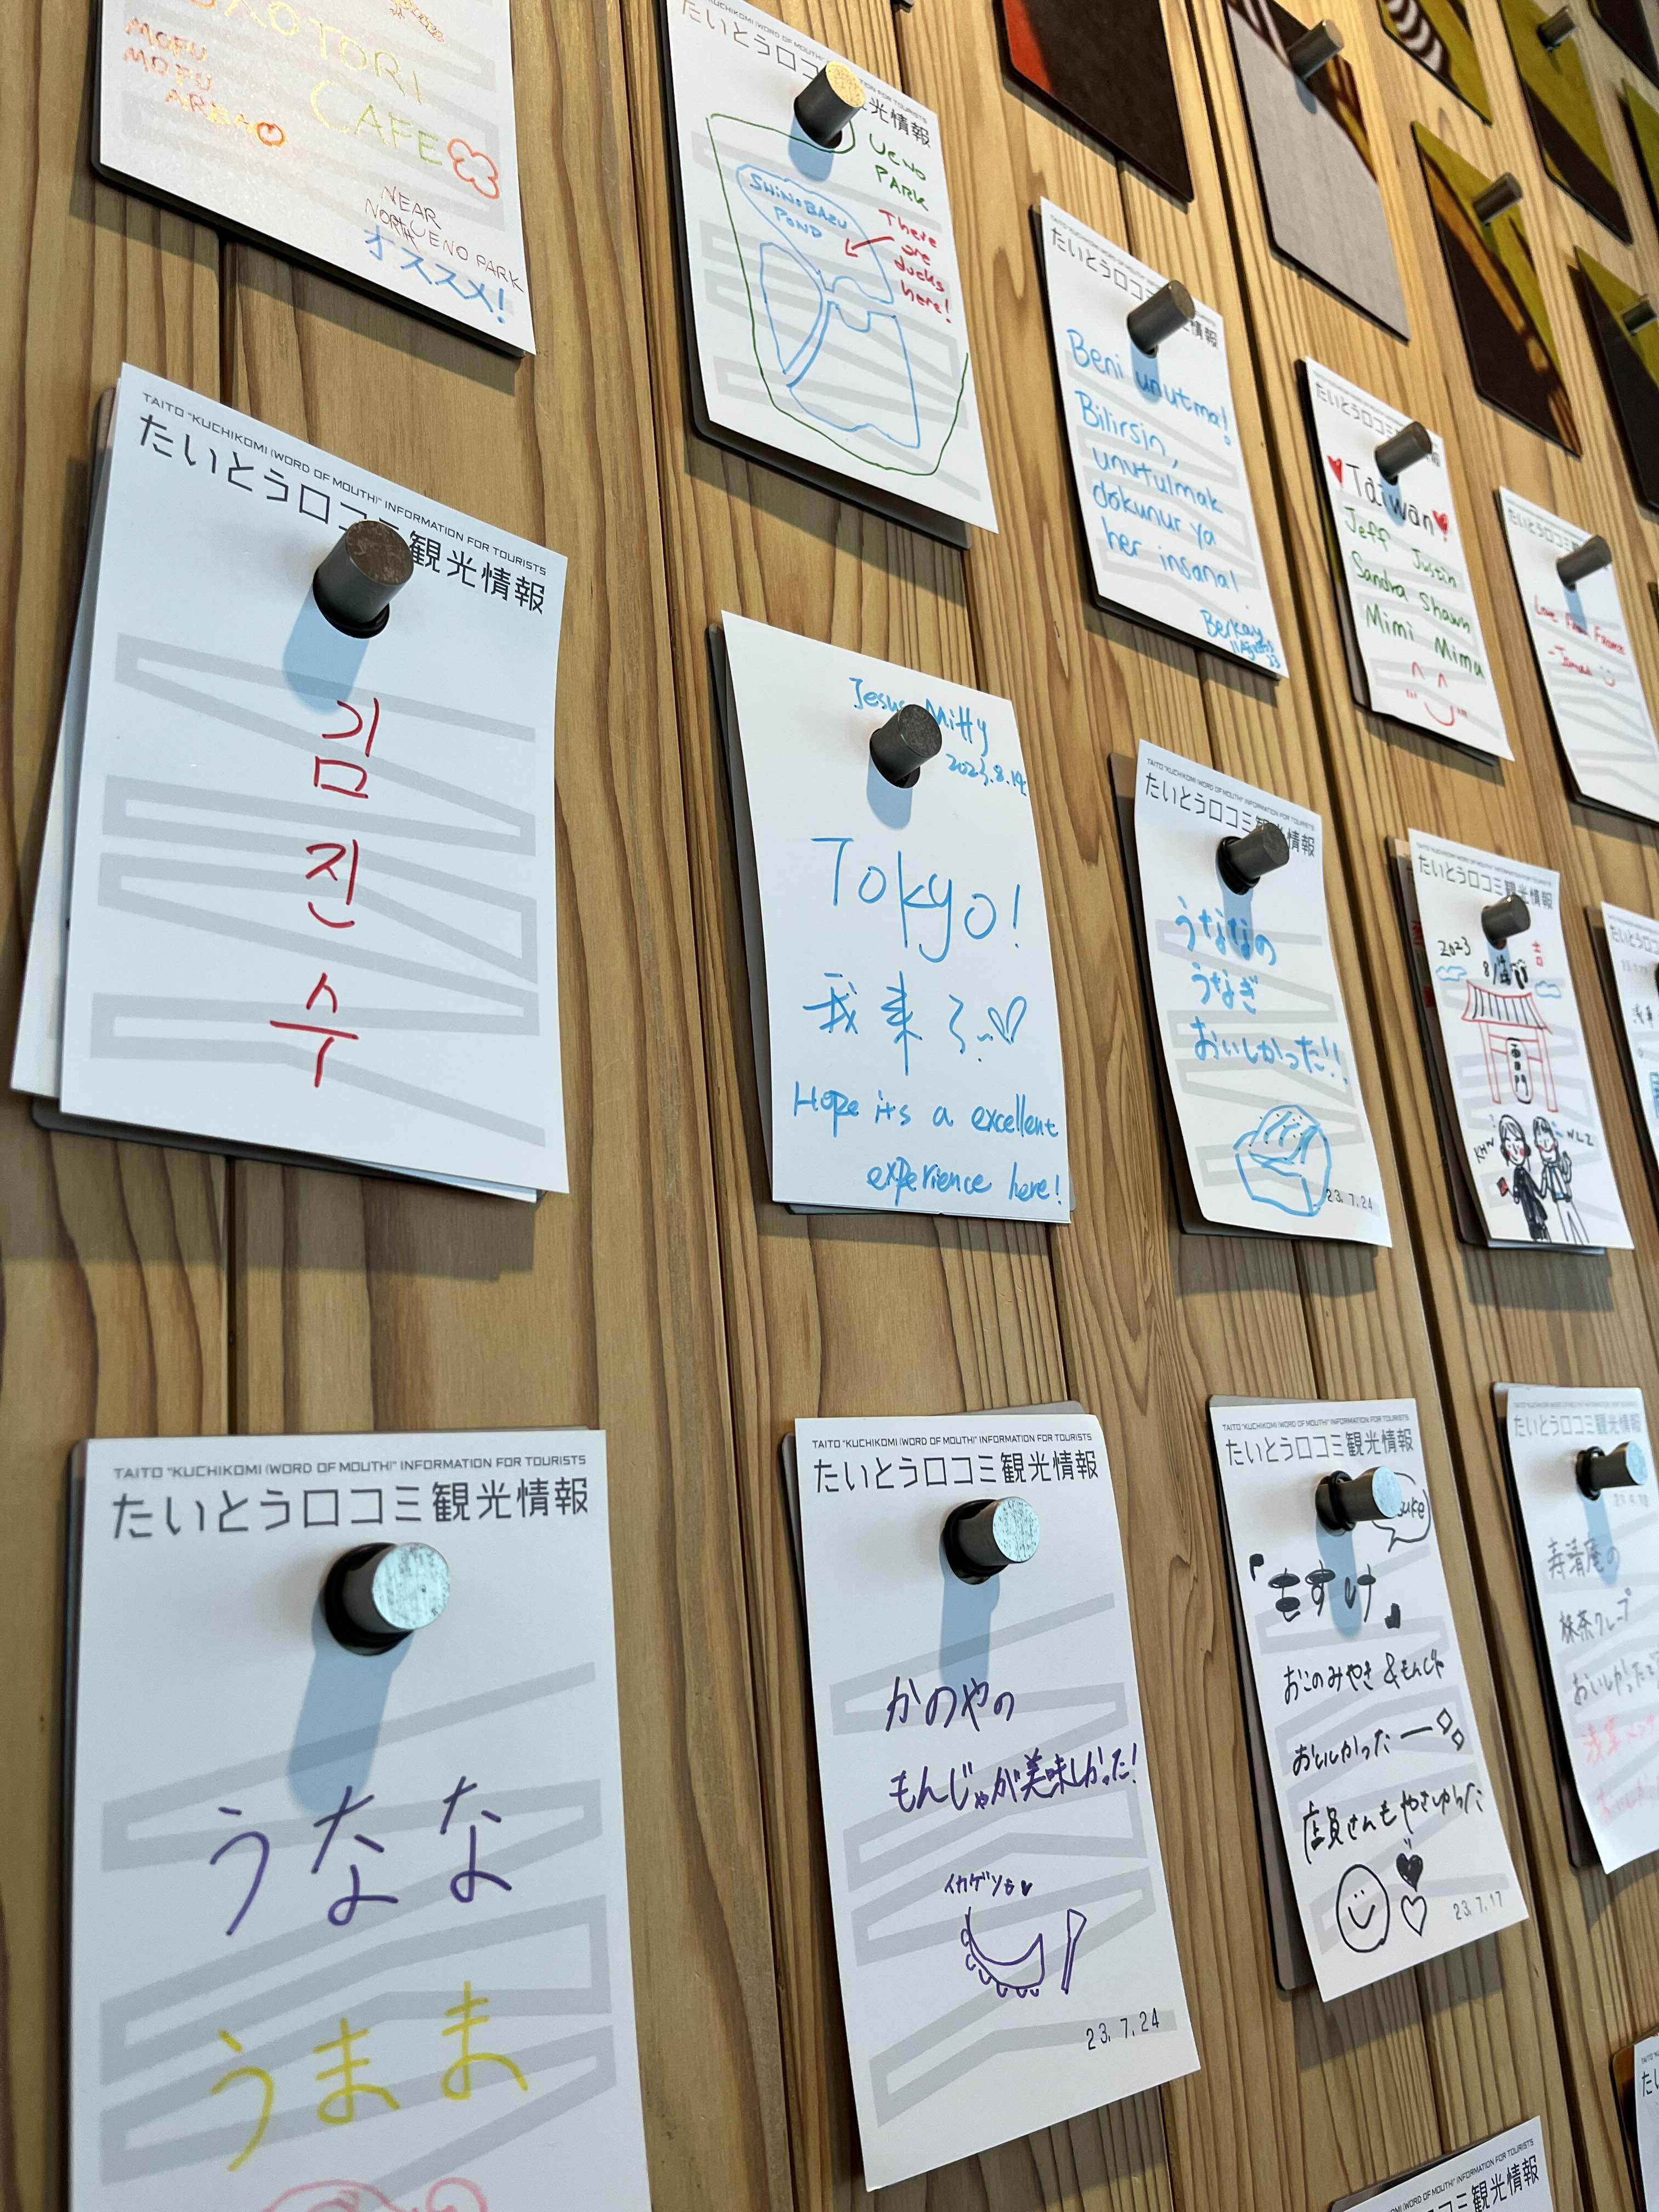 TORI
CAFE
MOFU
MOFU
NEAR
NORTH UENO PARK
オススメ!
観光情報
UENO
PARK
SHINOBAZU
POND
There
are
ducks
here!
たいとう口コミ
情報
Beni unutma!
Bilirsin,
unutulmak
dokunur ya
her insana!
Berkay
たいとう口コミ
Taiwan
Jeff Justin
Sandra Shawn
Mimi Mima
たいとう口コミ
Love From France
TAITO "KUCHIKOMI (WORD OF MOUTH)" INFORMATION FOR TOURISTS
たいとう口コミ観光情報
김
진
수
Jesus Mitty
2023.8.14
Tokyo!
我来了~♡
Hope its a excellent
experience here!
TAITO "KUCHIKOMI (WORD OF MOUTH)" INFORMATION FOR TOURISTS
たいとう口コミ観光情報
うななの
うなぎ
おいしかった!!
23.7.24
たいとう口コミ観光情報
2023
吉
雷門
TAITO "KUCHIKOMI (WORD OF MOUTH)" INFORMATION FOR TOURISTS
たいとう口コミ観光情報
うなな
うまま
TAITO "KUCHIKOMI (WORD OF MOUTH)" INFORMATION FOR TOURISTS
たいとう口コミ観光情報
かのやの
もんじゃが美味しかった!
イカゲソも♥
23.7.24
TAITO "KUCHIKOMI (WORD OF MOUTH)" INFORMATION FOR TOURISTS
たいとう口コミ観光情報
「もすけ」
おこのみやき&もんじゃ
おいしかったー
店員さんもやさしかった
23.7.17
たいとう口コミ観光情報
寿清庵の
抹茶クレープ
おいしかった
TAITO "KUCHIKOMI (WORD OF MOUTH)" INFORMATION FOR TOURISTS
観光情報